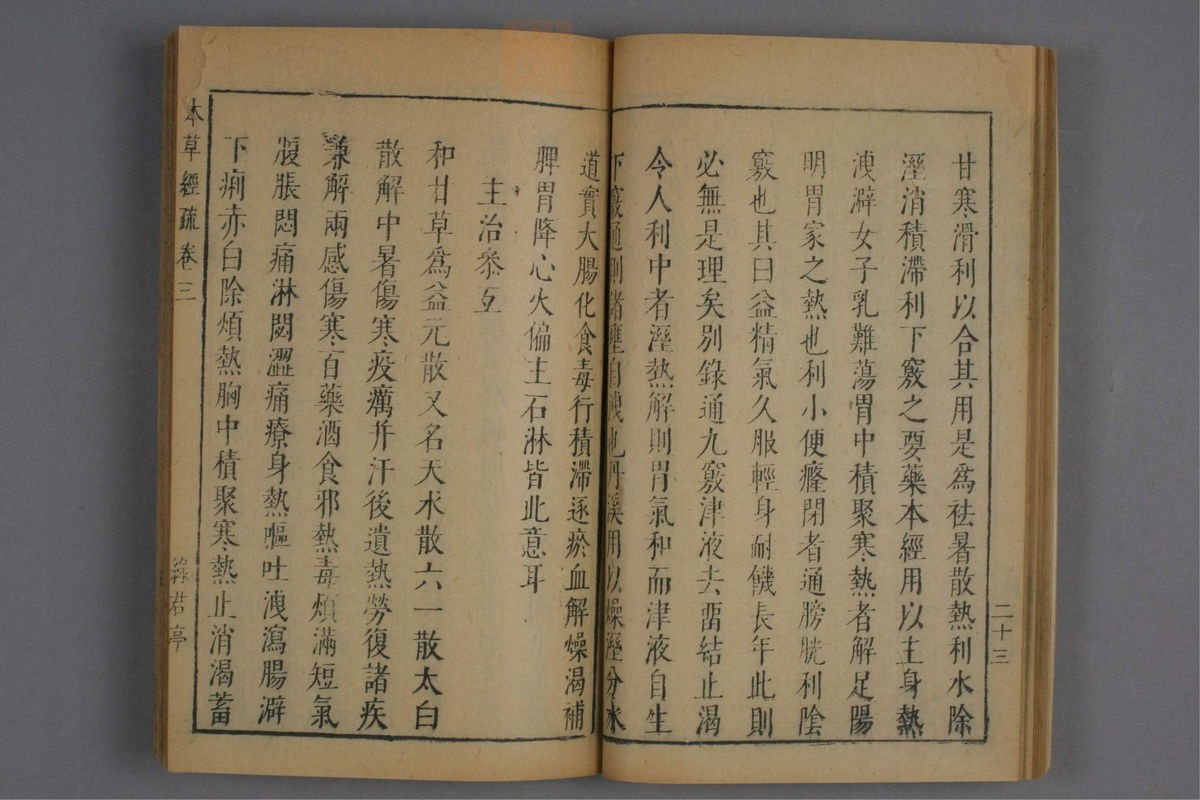 甘寒滑利以合其用是爲祛暑散熱利水除
溼消積滯利下竅之要藥本經用以主身熱
洩澼女子乳難蕩胃中積聚寒熱者解足陽
明胃家之熱也利小便癃閉者通膀胱利陰
竅也其曰益精氣久服輕身耐饑長年此則
必無是理矣別錄通九竅津液去畱結止渴
令人利中者溼熱解則胃氣和而津液自生
下竅通則諸壅自洩也丹溪用以燥溼分水
二十三
道實大腸化食毒行積滯逐瘀血解燥渴補
脾胃降心火偏主石淋皆此意耳
主治參互
和甘草爲益元散又名天水散六一散太白
散解中暑傷寒疫癘并汗後遺熱勞復諸疾
兼解兩感傷寒百藥酒食邪熱毒煩滿短氣
腹脹悶痛淋閟澀痛療身熱嘔吐洩瀉腸澼
下痢赤白除煩熱胸中積聚寒熱止消渴蓄
本草經疏 卷三
綠君亭